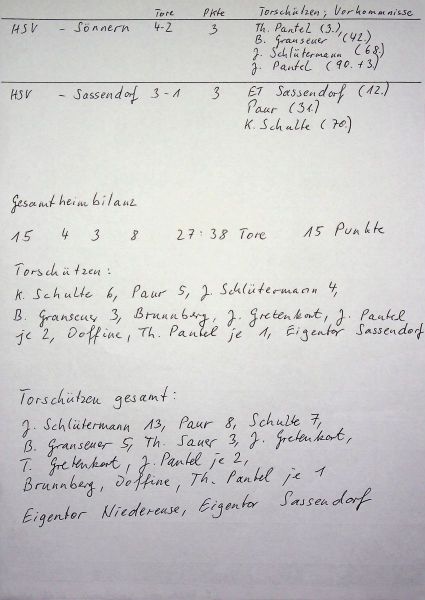 Tore Pkte Torschützen; Vorkommnisse
HSV - Sönnern 4-2 3 Th. Pantel (3.)
B. Granseuer (42.)
J. Schlütermann (68.)
J. Pantel (90.+3.)
HSV - Sassendorf 3-1 3 ET Sassendorf (12.)
Paur (31.)
K. Schulte (70.)
Gesamtheimbilanz
15 4 3 8 27:38 Tore 15 Punkte
Torschützen:
K. Schulte 6, Paur 5, J. Schlütermann 4,
B. Granseuer 3, Brunnberg, J. Gretenkort, J. Pantel
je 2, Doffine, Th. Pantel je 1, Eigentor Sassendorf
Torschützen gesamt:
J. Schlütermann 13, Paur 8, Schulte 7,
B. Granseuer 5, Th. Sauer 3, J. Gretenkort,
T. Gretenkort, J. Pantel je 2,
Brunnberg, Doffine, Th. Pantel je 1
Eigentor Niedereuse, Eigentor Sassendorf